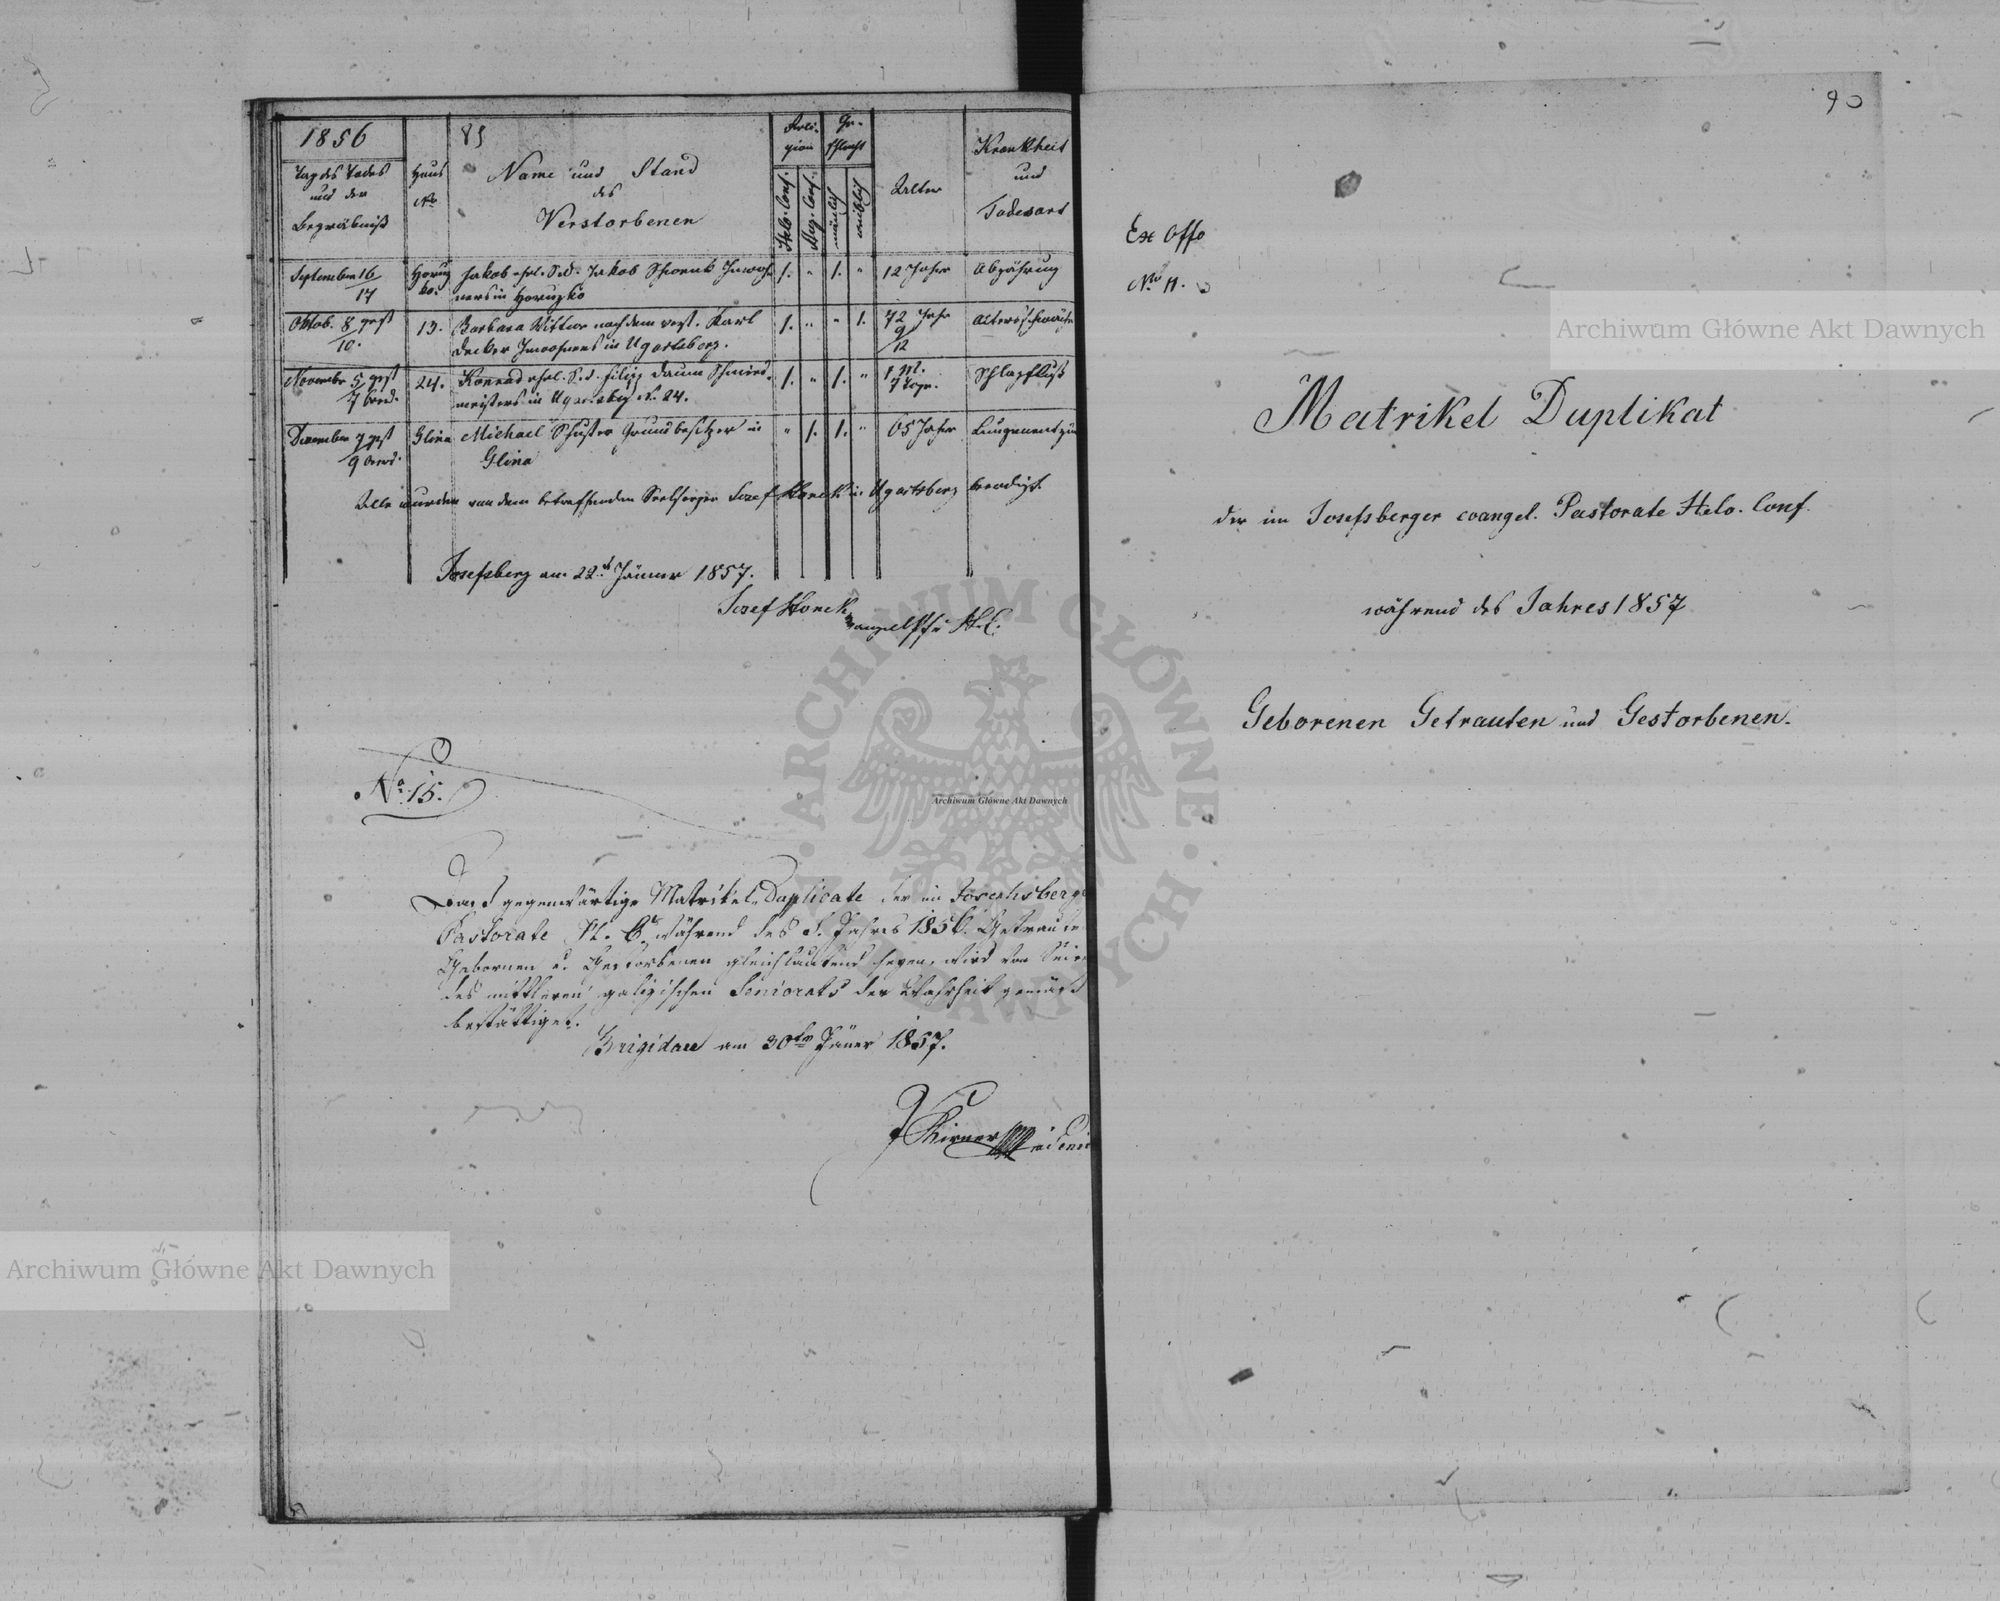 1856
89
Tag des Todes
und der
Begräbniß
Haus
No
Name und Stand
des
Verstorbenen
Reli-
gion
Ge-
schlecht
Helv. Conf.
Aug. Conf.
mänlich
weiblich
Alter
Krankheit
und
Todesart
September 16
17
Jakob ehel. S. d. Jakob
ners in
1.
"
1.
"
12 Jahre
Abzehrung
Oktob. 8 gest
10.
13.
Barbara Wittwe nach dem verst. Karl
Decker Inwohners in Ugartsberg.
1.
"
"
1.
72 Jahr
9
12
Altersschwäche
November 5 gest
7 beerd.
24.
Konrad ehel. S. d. Filipp Daum Schmied-
meisters in Ugartsberg N. 24.
1.
"
1.
"
1 M.
7 Tage.
Schlagfluß
Dezember 7 gest
9 beerd.
Glina
Michael Schuster Grundbesitzer in
Glina
"
1.
1.
"
65 Jahre
Lungenentzün
Alle wurden von dem betreffenden Seelsorger Josef Honek in Ugartsberg beerdigt.
Josefsberg am 22. Jänner 1857.
Josef Honek
evangel. Pfr H. C.
No 15.
Daß gegenwärtige Matrikel-Duplicate der im Josephsberge
Pastorate H. C. während des S. Jahres 1856 Getraute
Gebornen u. Gestorbenen gleichlautend seyen, wird von Seite
des mittleren galizischen Seniorats der Wahrheit gemäß
bestättiget.
Brigidau am 30ten Jäner 1857.
90
Ex Offo
No 11.
Matrikel Duplikat
der im Josefsberger evangel. Pastorate Helv. Conf.
während des Jahres 1857
Geborenen Getrauten und Gestorbenen.
Archiwum Główne Akt Dawnych
ARCHIWUM GŁÓWNE
AKT DAWNYCH
Archiwum Główne Akt Dawnych
Archiwum Główne Akt Dawnych